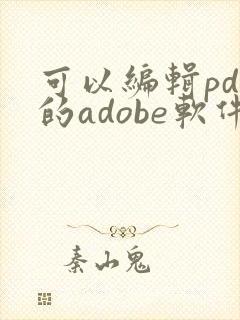 可以編輯pd
的adobe軟件
秦山鬼